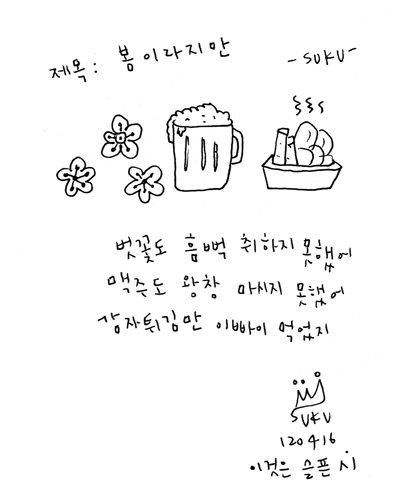 제목: 봄이라지만 -SUKU-
벚꽃도 흠뻑 취하지 못했에
맥주도 왕창 마시지 못했에
감자튀김만 이빠이 먹었지
SUKU
120416
이것은 슬픈 시